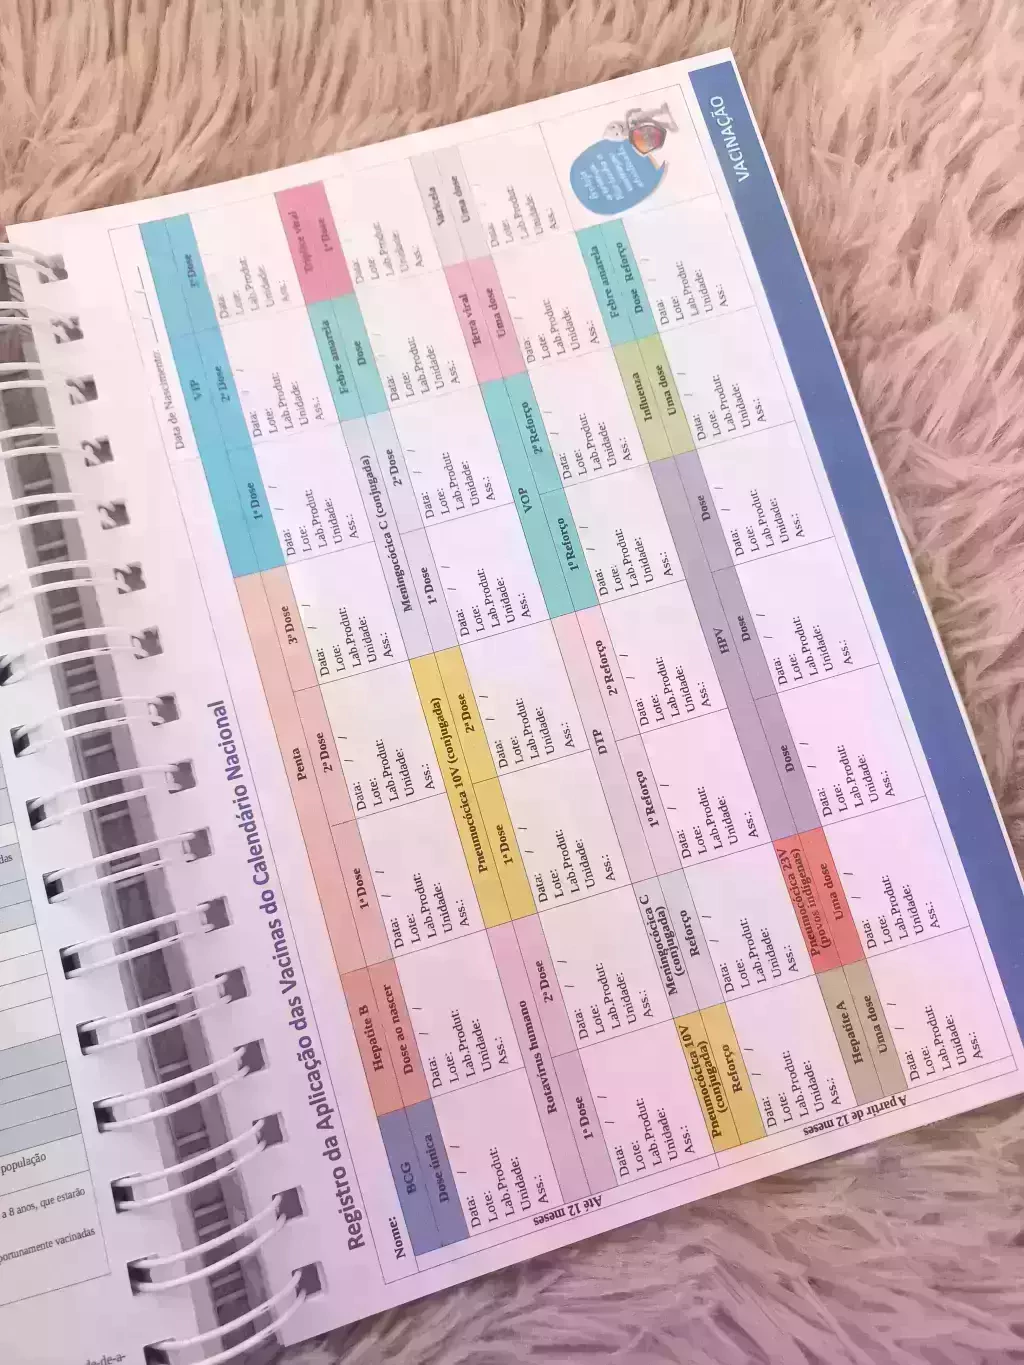 Registro da Aplicação das Vacinas do Calendário Nacional
Nome:
Data de Nascimento: ___/___/___
Até 12 meses
BCG
Dose única
Data: / /
Lote:
Lab.Produt:
Unidade:
Ass.:
Hepatite B
Dose ao nascer
Data: / /
Lote:
Lab.Produt:
Unidade:
Ass.:
Penta
1ª Dose
Data: / /
Lote:
Lab.Produt:
Unidade:
Ass.:
2ª Dose
Data: / /
Lote:
Lab.Produt:
Unidade:
Ass.:
3ª Dose
Data: / /
Lote:
Lab.Produt:
Unidade:
Ass.:
VIP
1ª Dose
Data: / /
Lote:
Lab.Produt:
Unidade:
Ass.:
2ª Dose
Data: / /
Lote:
Lab.Produt:
Unidade:
Ass.:
3ª Dose
Data: / /
Lote:
Lab.Produt:
Unidade:
Ass.:
Rotavírus humano
1ª Dose
Data: / /
Lote:
Lab.Produt:
Unidade:
Ass.:
2ª Dose
Data: / /
Lote:
Lab.Produt:
Unidade:
Ass.:
Pneumocócica 10V (conjugada)
1ª Dose
Data: / /
Lote:
Lab.Produt:
Unidade:
Ass.:
2ª Dose
Data: / /
Lote:
Lab.Produt:
Unidade:
Ass.:
Meningocócica C (conjugada)
1ª Dose
Data: / /
Lote:
Lab.Produt:
Unidade:
Ass.:
2ª Dose
Data: / /
Lote:
Lab.Produt:
Unidade:
Ass.:
Febre amarela
Dose
Data: / /
Lote:
Lab.Produt:
Unidade:
Ass.:
Tríplice viral
1ª Dose
Data: / /
Lote:
Lab.Produt:
Unidade:
Ass.:
A partir de 12 meses
Pneumocócica 10V
(conjugada)
Reforço
Data: / /
Lote:
Lab.Produt:
Unidade:
Ass.:
Meningocócica C
(conjugada)
Reforço
Data: / /
Lote:
Lab.Produt:
Unidade:
Ass.:
DTP
1º Reforço
Data: / /
Lote:
Lab.Produt:
Unidade:
Ass.:
2º Reforço
Data: / /
Lote:
Lab.Produt:
Unidade:
Ass.:
VOP
1º Reforço
Data: / /
Lote:
Lab.Produt:
Unidade:
Ass.:
2º Reforço
Data: / /
Lote:
Lab.Produt:
Unidade:
Ass.:
Tetra viral
Uma dose
Data: / /
Lote:
Lab.Produt:
Unidade:
Ass.:
Varicela
Uma dose
Data: / /
Lote:
Lab.Produt:
Unidade:
Ass.:
Hepatite A
Uma dose
Data: / /
Lote:
Lab.Produt:
Unidade:
Ass.:
Pneumocócica 23V
(povos indígenas)
Uma dose
Data: / /
Lote:
Lab.Produt:
Unidade:
Ass.:
HPV
Dose
Data: / /
Lote:
Lab.Produt:
Unidade:
Ass.:
Dose
Data: / /
Lote:
Lab.Produt:
Unidade:
Ass.:
Dose
Data: / /
Lote:
Lab.Produt:
Unidade:
Ass.:
Influenza
Uma dose
Data: / /
Lote:
Lab.Produt:
Unidade:
Ass.:
Febre amarela
Dose Reforço
Data: / /
Lote:
Lab.Produt:
Unidade:
Ass.:
VACINAÇÃO
das
população
a 8 anos, que estarão
portunamente vacinadas